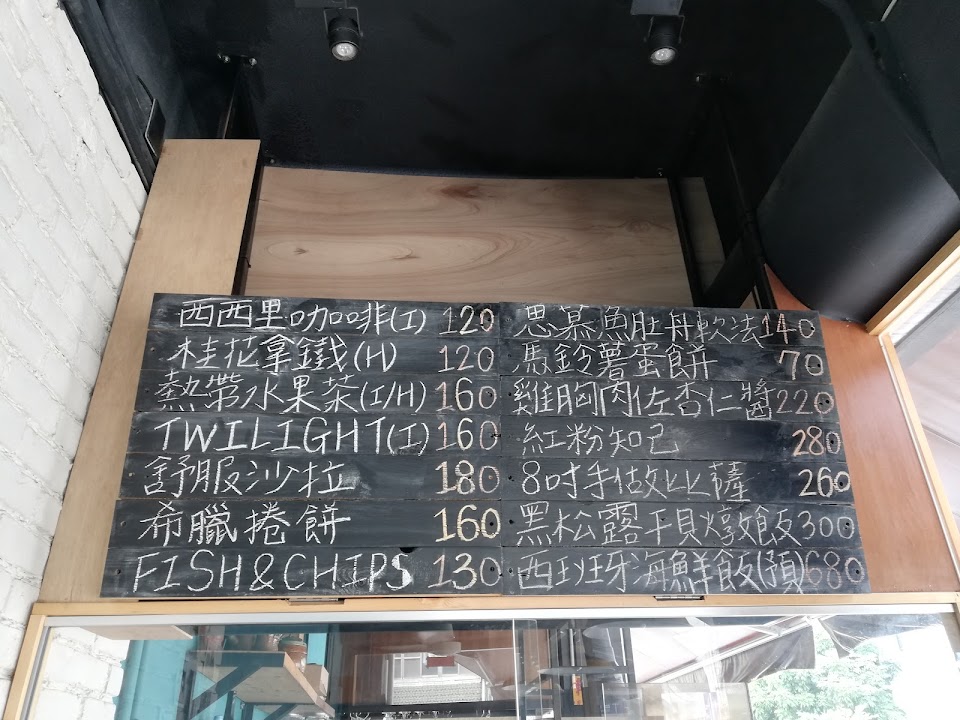 西西里咖啡(I) 120
桂花拿鐵(H) 120
熱帶水果茶(I/H) 160
TWILIGHT(I) 160
舒服沙拉 180
希臘捲餅 160
FISH&CHIPS 130
思慕魚肚丼軟法 140
馬鈴薯蛋餅 70
雞胸肉佐杏仁醬 220
紅粉知己 280
8吋手做比薩 260
黑松露干貝燉飯 300
西班牙海鮮飯(預) 680